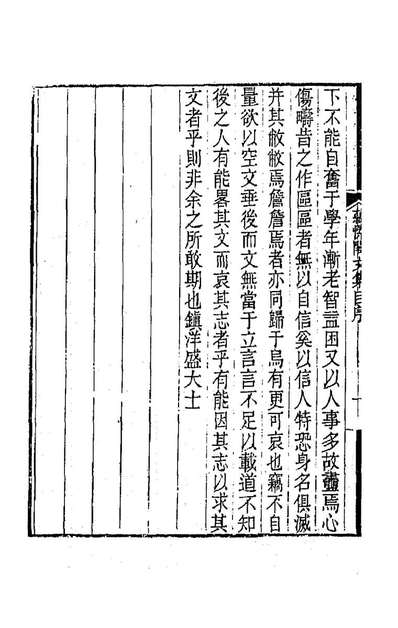 下不能自奮于學年漸老智益困又以人事多故衋焉心
傷疇昔之作區區者無以自信奚以信人特恐身名俱滅
并其敝敝焉詹詹焉者亦同歸于烏有更可哀也竊不自
量欲以空文垂後而文無當于立言言不足以載道不知
後之人有能畧其文而哀其志者乎有能因其志以求其
文者乎則非余之所敢期也鎮洋盛大士
文集自序